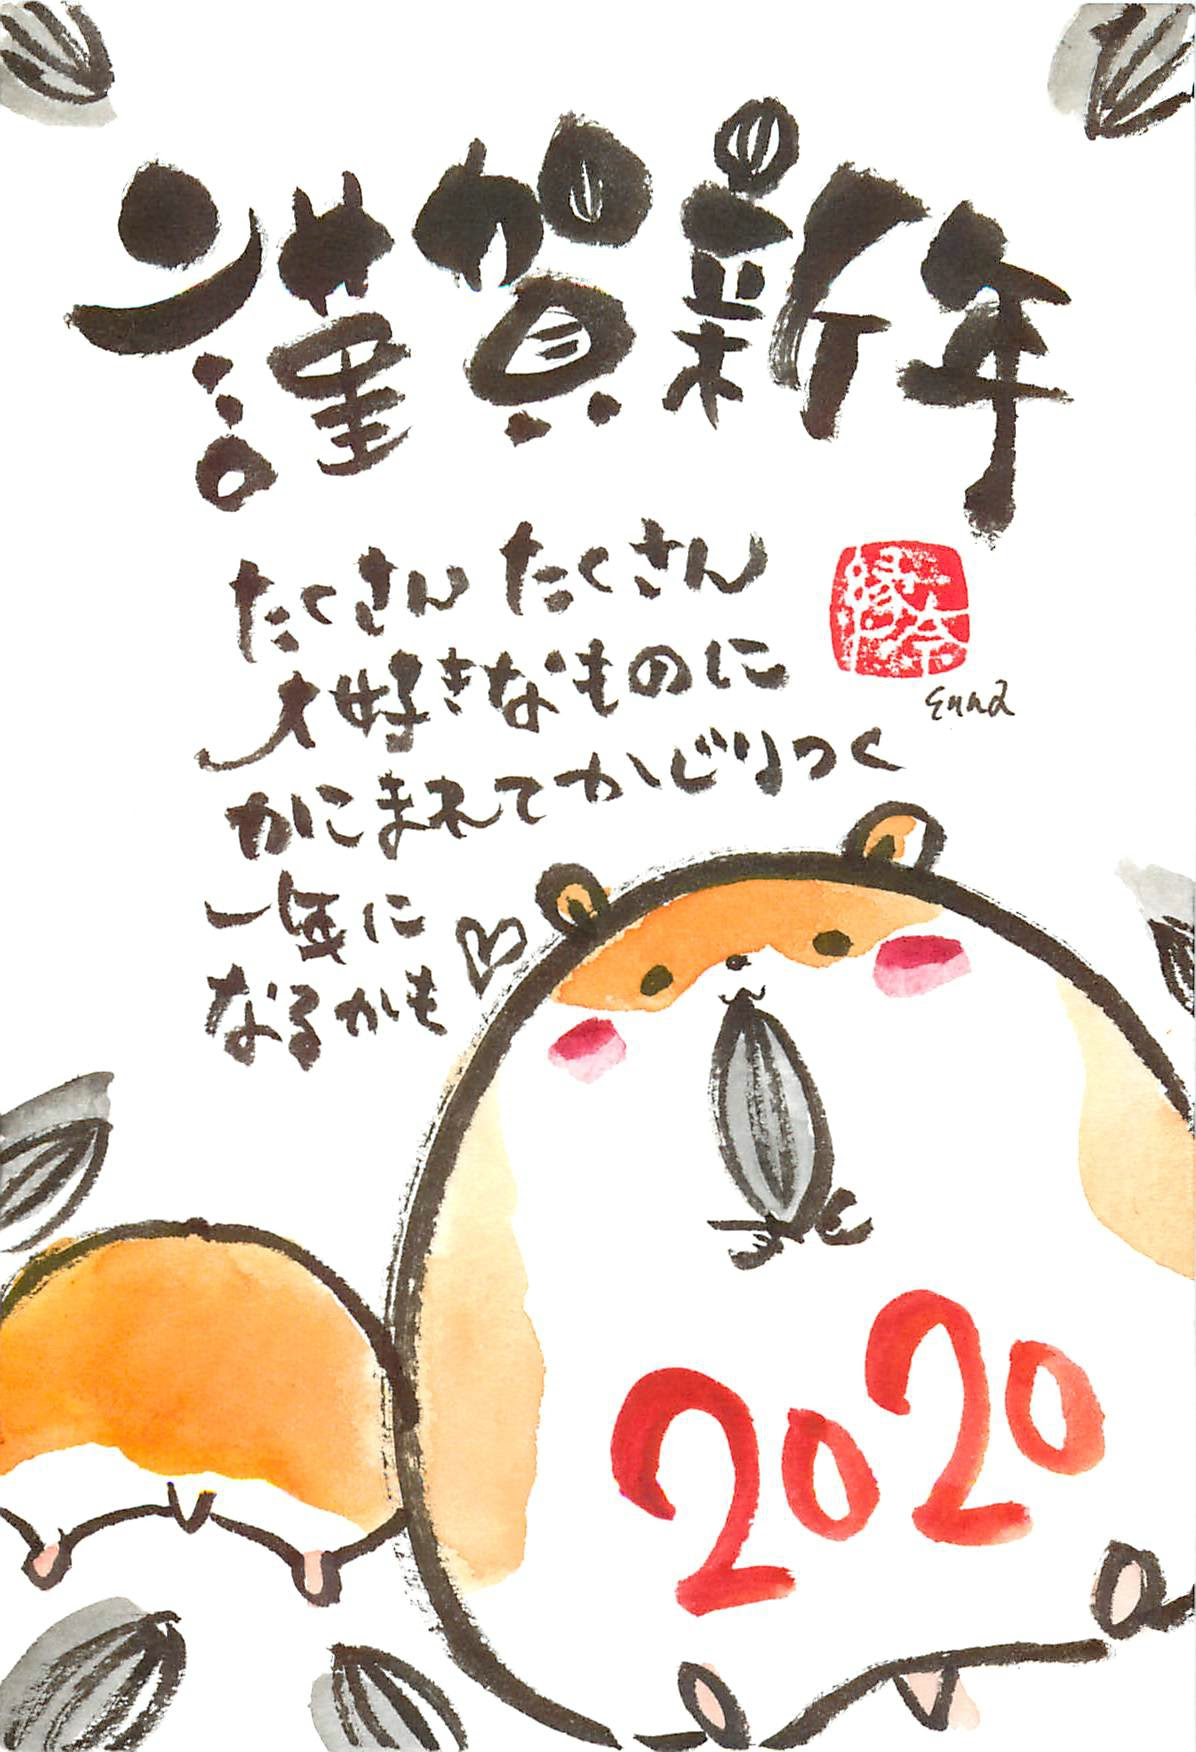 謹賀新年
たくさん たくさん
大好きなものに
かこまれてかじりつく
一年に
なるかも♡
縁奈
Enna
2020